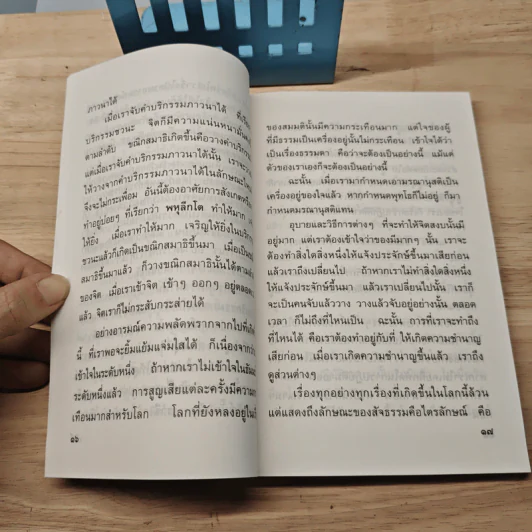 ภาวนาได้
เมื่อเราจับคำบริกรรมภาวนาได้ ที่เรีย
บริกรรมชวนะ จิตก็มีความแน่นหนามั่นค
ตามลำดับ ขณิกสมาธิเกิดขึ้นคือวางคำบริกรร
แต่เมื่อเราจับคำบริกรรมภาวนาได้นั้น เราจะว
ให้วางจากคำบริกรรมภาวนาได้ในลักษณะไหน
จึงจะไม่กระเพื่อม อันนี้ต้องอาศัยการสังเกตหรือ
ทำอยู่บ่อยๆ ที่เรียกว่า พหุลีกโต ทำให้มาก เ
ให้ยิ่ง เมื่อเราทำให้มาก เจริญให้ยิ่งในบริกร
ชวนะแล้วก็เกิดเป็นขณิกสมาธิขึ้นมา เมื่อเป็นขณิ
สมาธิขึ้นมาแล้ว ก็วางขณิกสมาธินั้นได้ตามลำ
ของจิต เมื่อเราเข้าจิต เข้าๆ ออกๆ อยู่ตลอดเว
แล้ว จิตเราก็ไม่กระสับกระส่ายได้
อย่างอารมณ์ความพลัดพรากจากไปที่เกิด
นี้ ที่เราพอจะยิ้มแย้มแจ่มใสได้ ก็เนื่องจากว่า
เข้าใจในระดับหนึ่ง ถ้าหากเราไม่เข้าใจในธรรม
ระดับหนึ่งแล้ว การสูญเสียแต่ละครั้งมีความก
เทือนมากสำหรับโลก โลกที่ยังหลงอยู่ในสิ
๑๖
ของสมมตินั้นมีความกระเทือนมาก แต่ใจของผู้
ที่มีธรรมเป็นเครื่องอยู่นั้นไม่กระเทือน เข้าใจได้ว่า
เป็นเรื่องธรรมดา คือว่าจะต้องเป็นอย่างนี้ แม้แต่
ตัวของเราเองก็จะต้องเป็นอย่างนี้
ฉะนั้น เมื่อเรามากำหนดเอามรณานุสติเป็น
เครื่องอยู่ของใจแล้ว หากกำหนดพุทโธก็ไม่อยู่ ก็มา
กำหนดมรณานุสติแทน
อุบายและวิธีการต่างๆ ที่จะทำให้จิตสงบนั้นมี
อยู่มาก แต่เราต้องเข้าใจว่าของมีมากๆ นั้น เราจะ
ต้องทำสิ่งใดสิ่งหนึ่งให้แจ้งประจักษ์ขึ้นมาเสียก่อน
แล้วเราถึงเปลี่ยนไป ถ้าหากเราไม่ทำสิ่งใดสิ่งหนึ่ง
ให้แจ้งประจักษ์ขึ้นมา แล้วเราเปลี่ยนไปนั้น เราก็
จะเป็นคนจับแล้ววาง วางแล้วจับอยู่อย่างนั้น ตลอด
เวลา ก็ไม่ถึงที่ไหนเป็น ฉะนั้น การที่เราจะทำถึง
ที่ไหนได้ คือเราต้องทำอยู่กับที่ ให้เกิดความชำนาญ
เสียก่อน เมื่อเราเกิดความชำนาญขึ้นแล้ว เราถึง
ดูส่วนต่างๆ
เรื่องทุกอย่างทุกเรื่องที่เกิดขึ้นในโลกนี้ล้วน
แต่แสดงถึงลักษณะของสัจธรรมคือไตรลักษณ์ คือ
๑๗